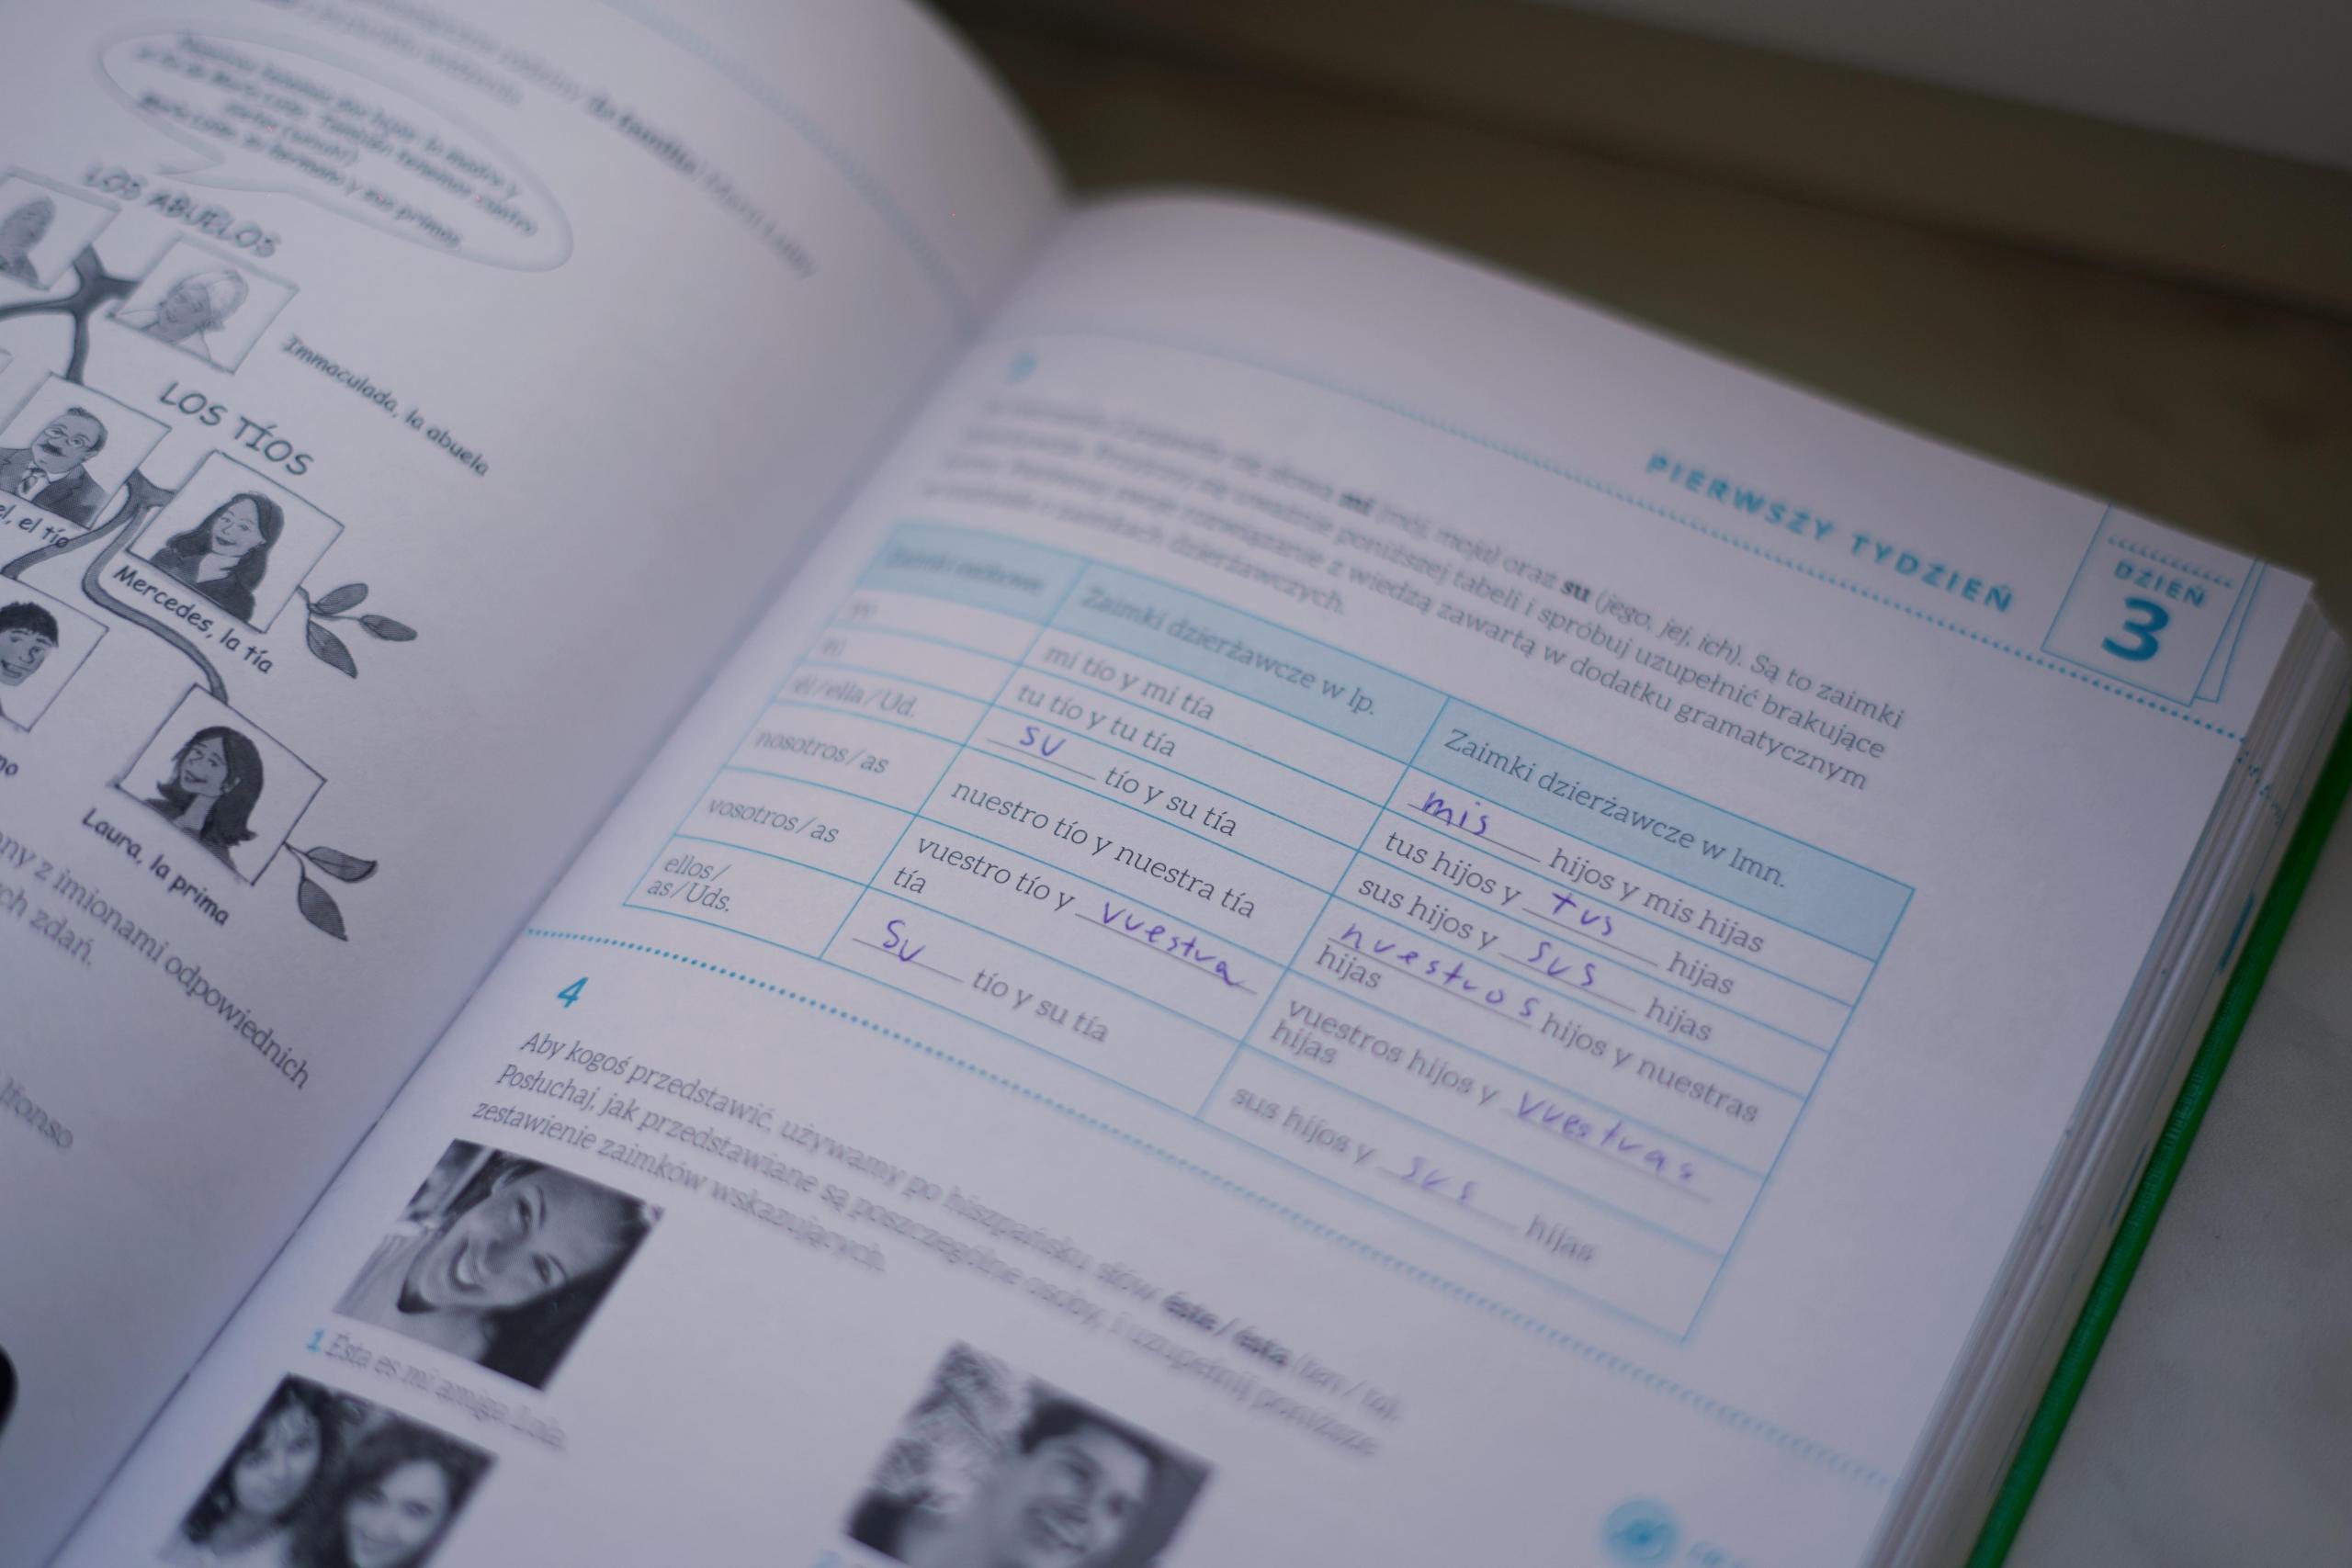 la familia
LOS ABUELOS
Immaculada, la abuela
LOS TÍOS
el tío
Mercedes, la tía
Laura, la prima
z imionami odpowiednich
zdań.
PIERWSZY TYDZIEŃ
DZIEŃ
3
mi (mój, moja) oraz su (jego, jej, ich). Są to zaimki
się uważnie poniższej tabeli i spróbuj uzupełnić brakujące
swoje rozwiązanie z wiedzą zawartą w dodatku gramatycznym
o zaimkach dzierżawczych.
Zaimki osobowe
Zaimki dzierżawcze w lp.
Zaimki dzierżawcze w lmn.
yo
mi tío y mi tía
mis hijos y mis hijas
tú
tu tío y tu tía
tus hijos y tus hijas
él/ella/Ud.
su tío y su tía
sus hijos y sus hijas
nosotros/as
nuestro tío y nuestra tía
nuestros hijos y nuestras
hijas
vosotros/as
vuestro tío y vuestra
tía
vuestros hijos y vuestras
hijas
ellos/
as/Uds.
su tío y su tía
sus hijos y sus hijas
4
Aby kogoś przedstawić, używamy po hiszpańsku słów éste / ésta (ten / ta).
Posłuchaj, jak przedstawiane są poszczególne osoby, i uzupełnij poniższe
zestawienie zaimków wskazujących.
1 Esta es mi amiga